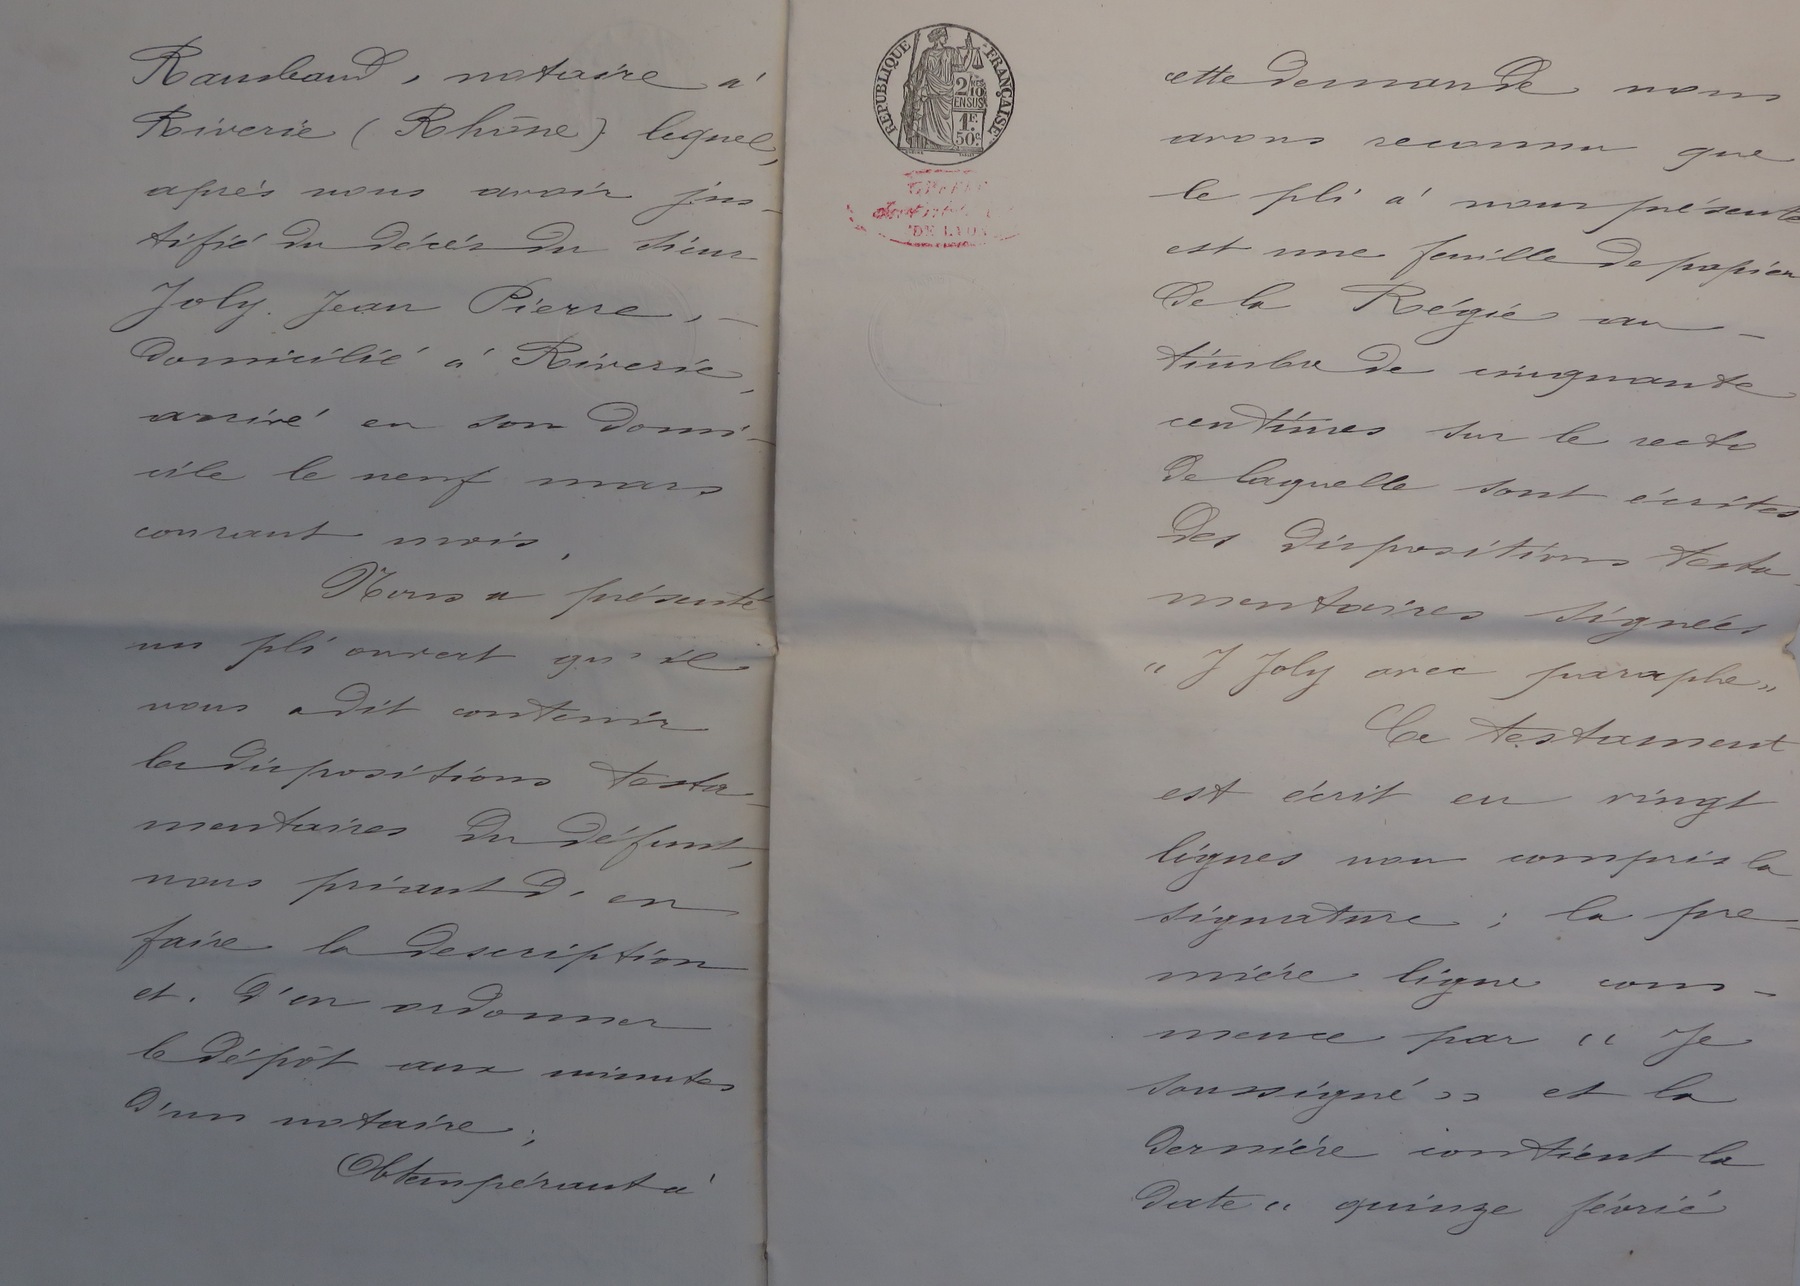 Rambaud, notaire à
Riverie (Rhône) lequel,
après nous avoir jus-
tifié du décès du sieur
Joly. Jean Pierre, -
domicilié à Riverie,
arrivé en son domi-
cile le neuf mars
courant mois,
Nous a présenté
un pli ouvert qu'il
nous a dit contenir
les dispositions testa-
mentaires du défunt,
nous priant d'en
faire la description
et d'en ordonner
le dépôt aux minutes
d'un notaire ;
Obtempérant à
RÉPUBLIQUE FRANÇAISE
2/10
EN SUS
1F.
50c.
DE LYON
cette demande nous
avons reconnu que
le pli à nous présenté
est une feuille de papier
de la Régie au -
timbre de cinquante
centimes sur le recto
de laquelle sont écrites
des dispositions testa-
mentaires signées
" J Joly avec paraphe "
Ce testament
est écrit en vingt
lignes non compris la
signature ; la pre-
mière ligne com-
mence par " Je
soussigné " et la
dernière contient la
date " quinze févrié